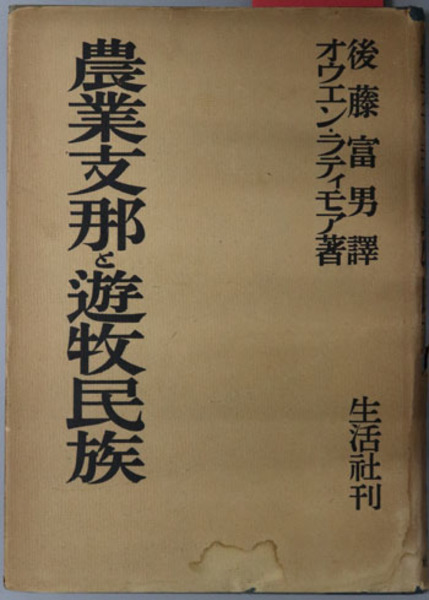 後藤富男譯
オウエン・ラティモア著
農業支那と遊牧民族
生活社刊